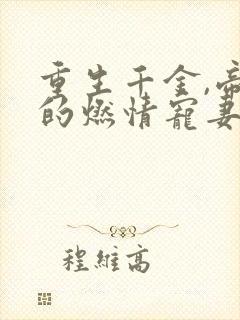 重生千金,帝
的燃情寵妻
程維高